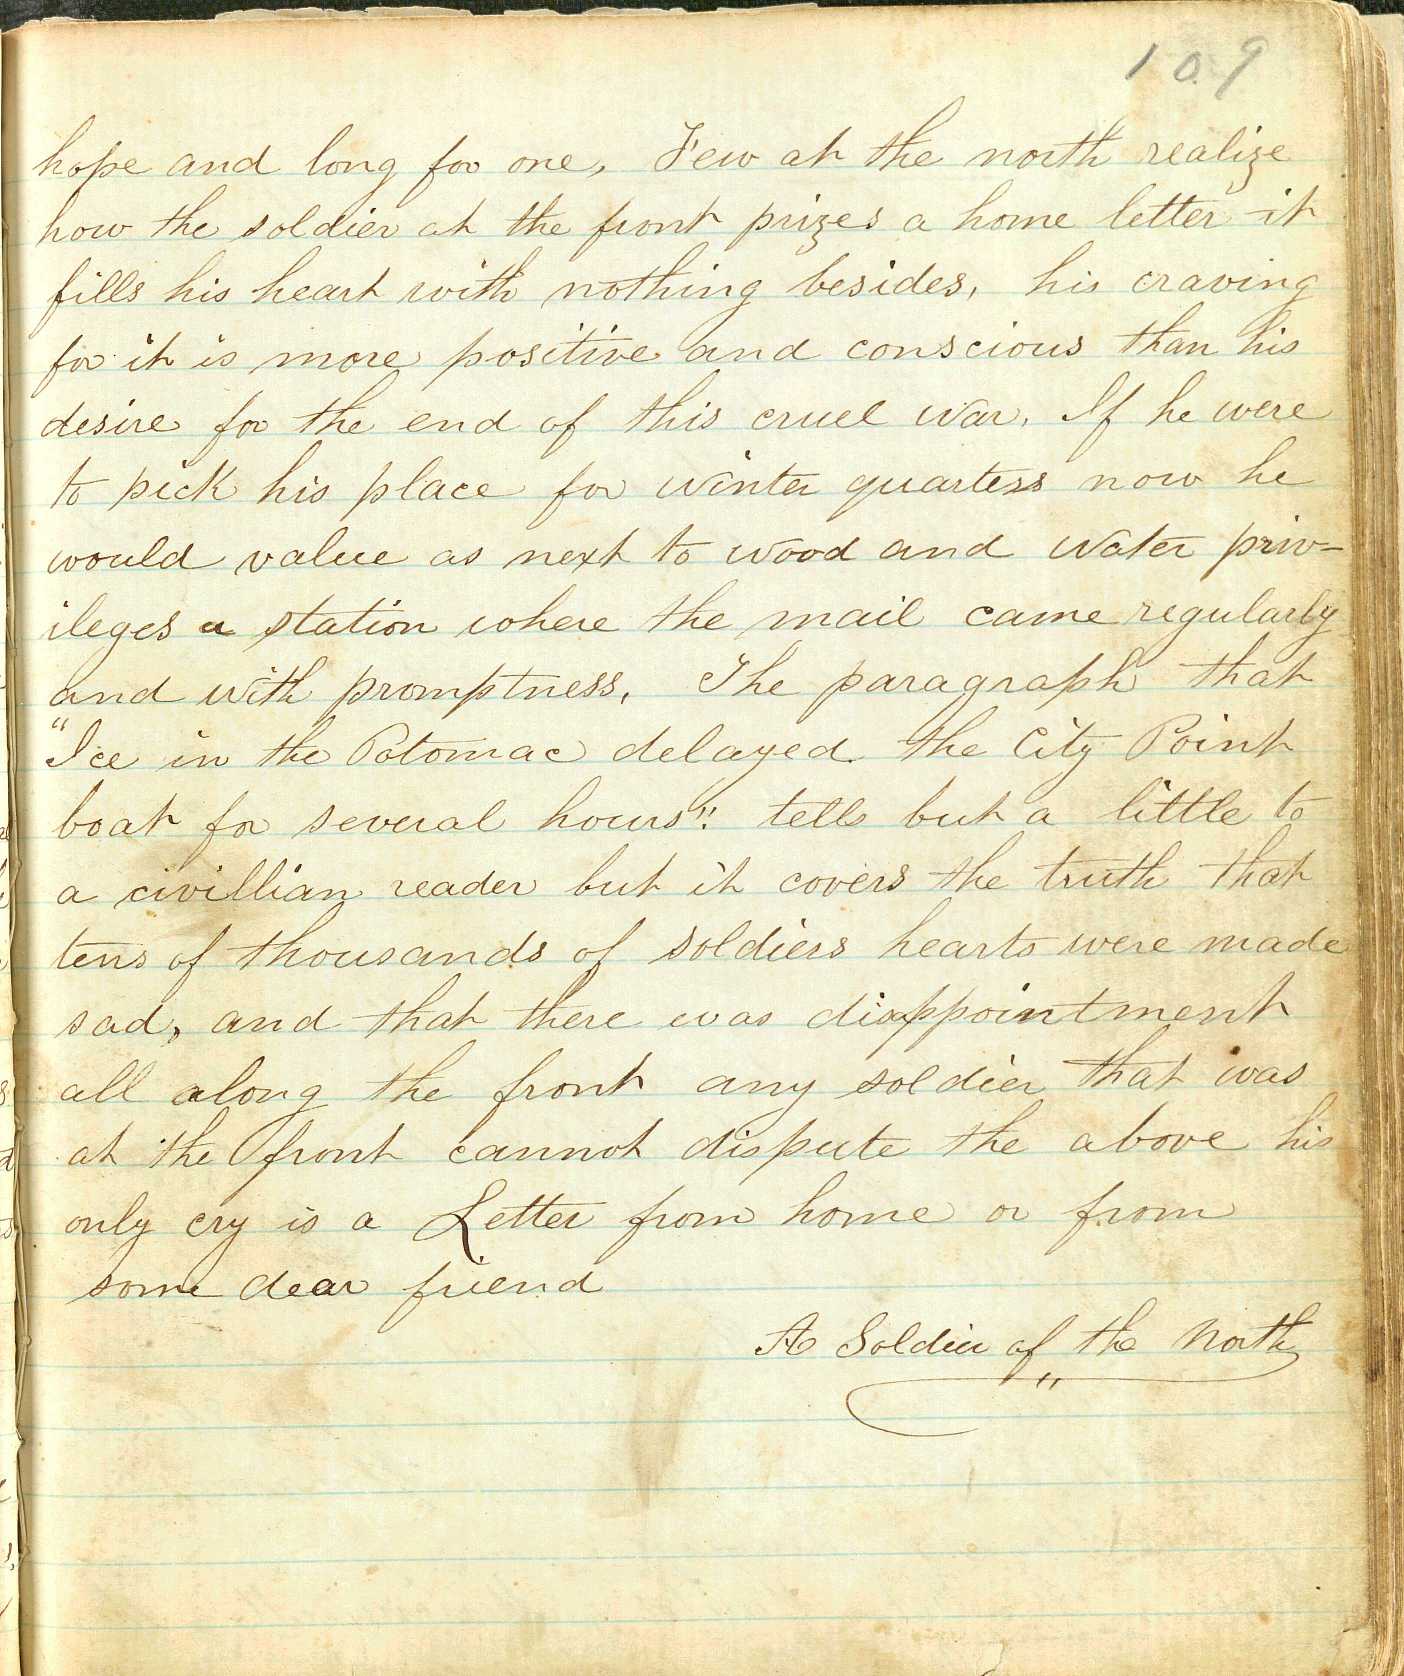 109
hope and long for one, Few at the north realize
how the soldier at the front prizes a home letter it
fills his heart with nothing besides, his craving
for it is more positive and conscious than his
desire for the end of this cruel war. If he were
to pick his place for winter quarters now he
would value as next to wood and water priv-
ileges a station where the mail came regularly
and with promptness, The paragraph that
"Ice in the Potomac delayed the City Point
boat for several hours". tells but a little to
a civillian reader but it covers the truth that
tens of thousands of soldiers hearts were made
sad, and that there was disappointment
all along the front any soldier that was
at the front cannot dispute the above his
only cry is a Letter from home or from
some dear friend
A Soldier of the North
"